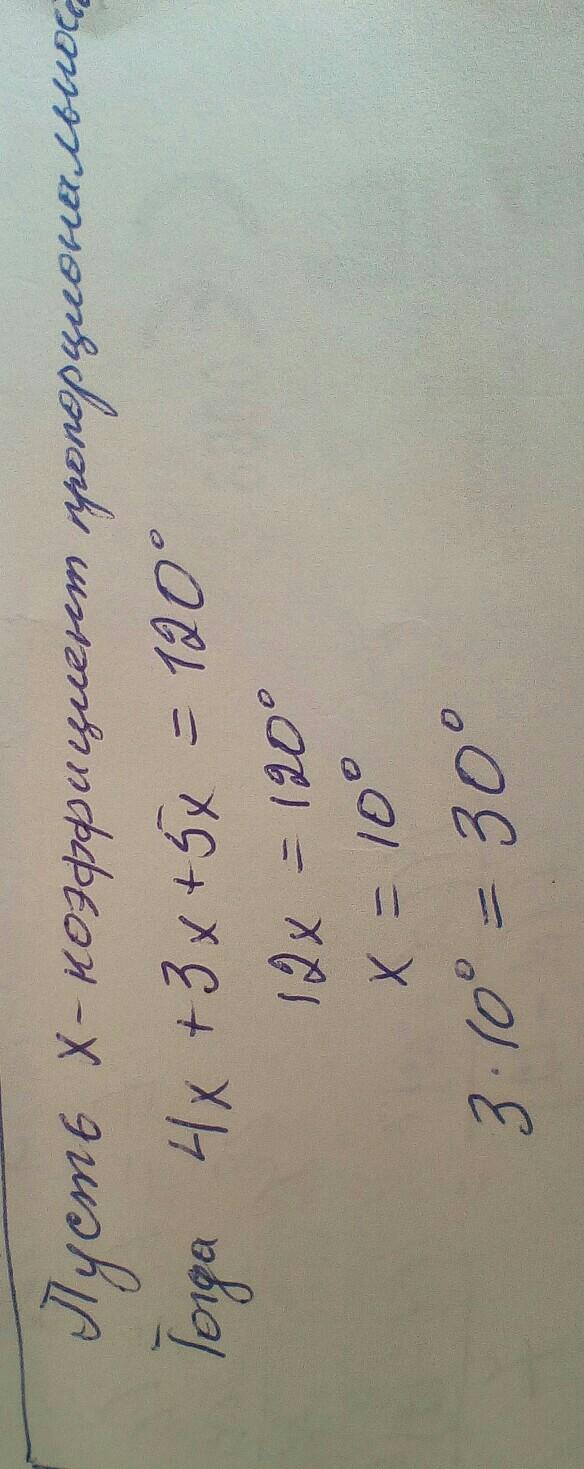 Пусть х - коэффициент пропорциональнос
Тогда 4х + 3х + 5х = 120°
12х = 120°
х = 10°
3 · 10° = 30°